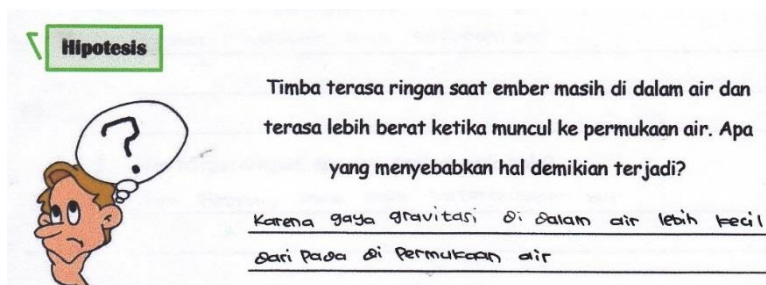 Hipotesis
Timba terasa ringan saat ember masih di dalam air dan
terasa lebih berat ketika muncul ke permukaan air. Apa
yang menyebabkan hal demikian terjadi?
Karena gaya gravitasi di dalam air lebih kecil
dari pada di permukaan air